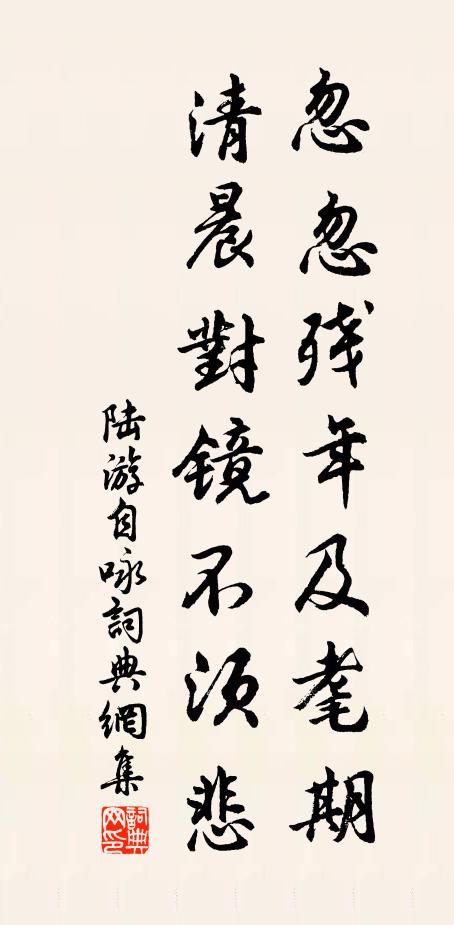 忽忽残年及耄期
清晨對镜不须悲
陆游自咏詞典網集
詞典网印